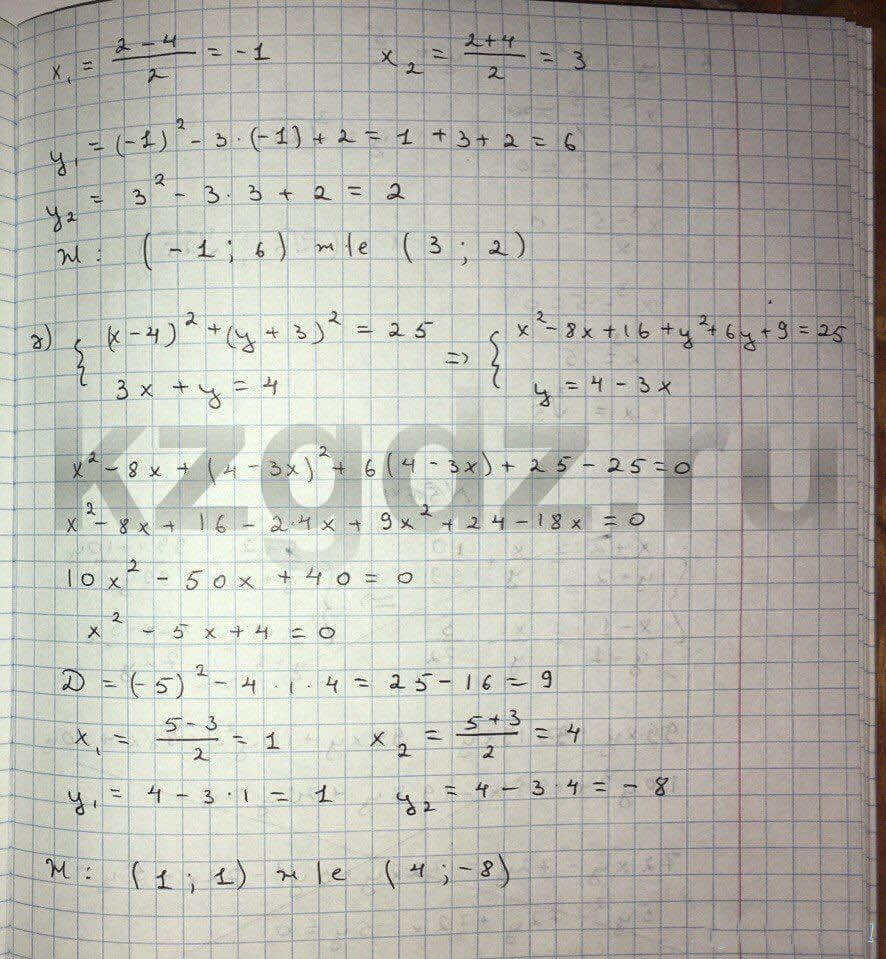 x₁ = (2 - 4)/2 = -1    x₂ = (2+4)/2 = 3
y₁ = (-1)² - 3·(-1) + 2 = 1 + 3 + 2 = 6
y₂ = 3² - 3·3 + 2 = 2
Ж: (-1; 6) ж/е (3; 2)
г) { (x-4)² + (y+3)² = 25 => { x² - 8x + 16 + y² + 6y + 9 = 25
3x + y = 4    y = 4 - 3x
x² - 8x + (4 - 3x)² + 6(4 - 3x) + 25 - 25 = 0
x² - 8x + 16 - 24x + 9x² + 24 - 18x = 0
10x² - 50x + 40 = 0
x² - 5x + 4 = 0
D = (-5)² - 4·1·4 = 25 - 16 = 9
x₁ = (5 - 3)/2 = 1    x₂ = (5+3)/2 = 4
y₁ = 4 - 3·1 = 1    y₂ = 4 - 3·4 = -8
Ж: (1; 1) ж/е (4; -8)
kzgdz.ru